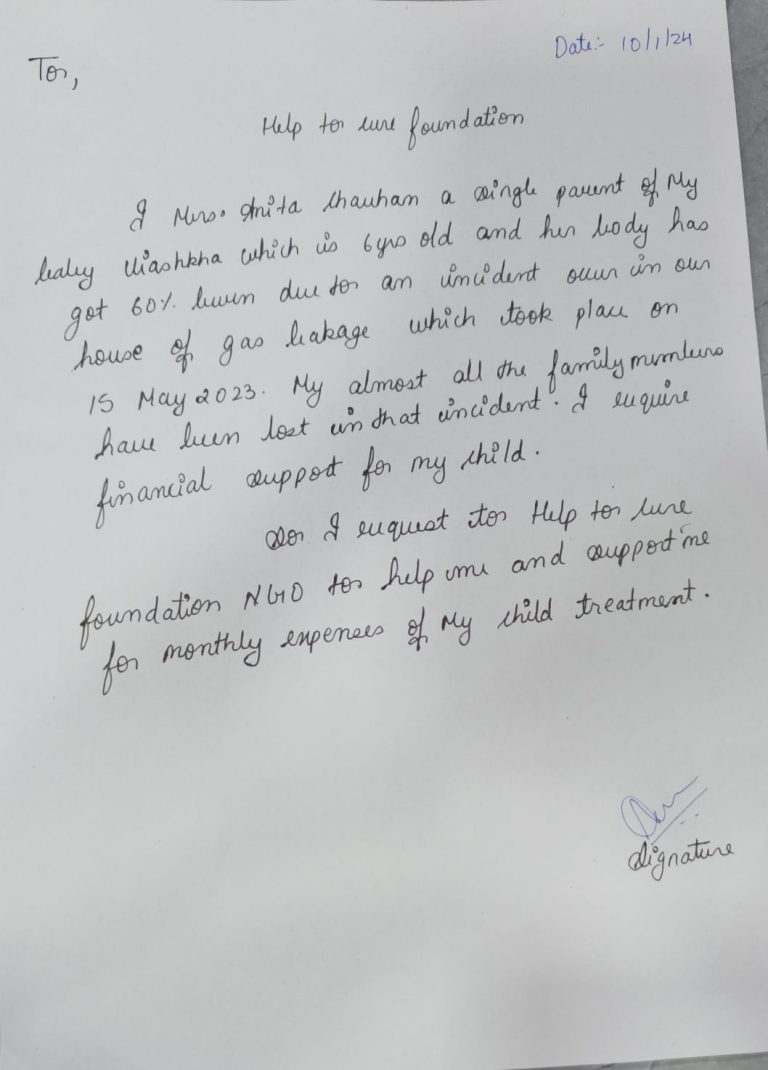 Date:- 10/1/24
To,
Help to cure foundation
I Mrs. Anita Chauhan a single parent of My
baby which is 6yrs old and her body has
got 60% burn due to an incident occur in our
house of gas leakage which took place on
15 May 2023. My almost all the family members
have been lost in that incident. I require
financial support for my child.
So I request to Help to cure
foundation NGO to help me and support me
for monthly expenses of My child treatment.
Signature